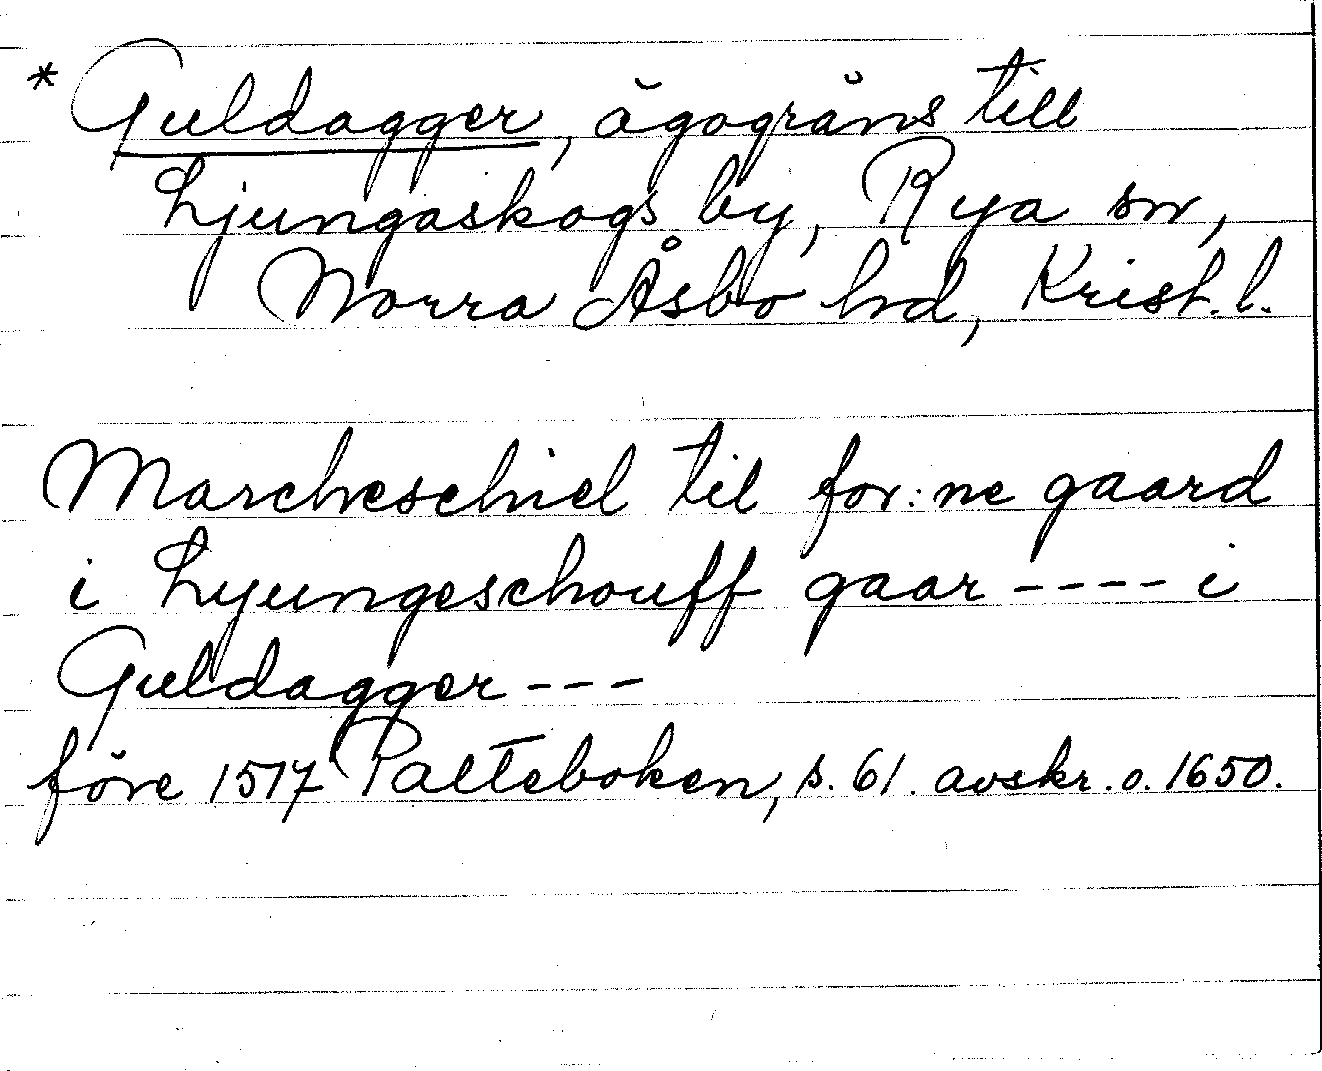 * Guldagger, ägogräns till
Ljungaskogs by, Rya sn,
Norra Åsbo hd, Krist. l.
Marcheschiel til for:ne gaard
i Lyungeschouff gaar ---- i
Guldagger ---
före 1517 Palteboken, s. 61. avskr. o. 1650.